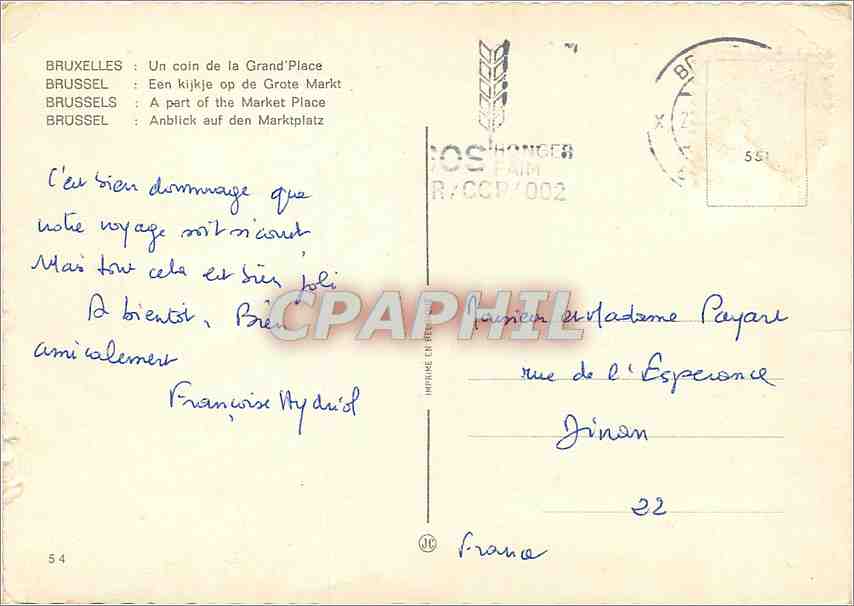 BRUXELLES : Un coin de la Grand'Place
BRUSSEL : Een kijkje op de Grote Markt
BRUSSELS : A part of the Market Place
BRÜSSEL : Anblick auf den Marktplatz
C'est bien dommage que
notre voyage soit si court
Mais tout cela est bien joli
A bientôt, Bien
amicalement
Françoise
54
IMPRIME EN
JC
SOS HONGER
FAIM
CCP/002
551
Monsieur et Madame Payart
rue de l'Esperance
Dinan
22
France
CPAPHIL